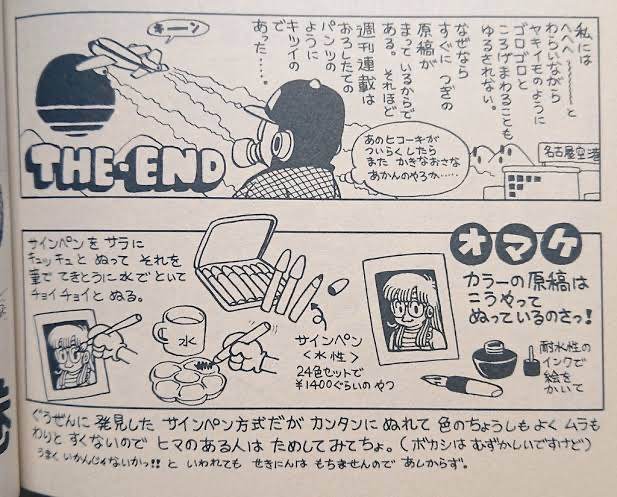 私には
へへへ～～～～と
わらいながら
ヤキイモのように
ゴロゴロと
ころげまわることも
ゆるされない。
なぜなら
すぐに つぎの
原稿が
まっているからで
ある。それほど
週刊連載は
おろしたての
パンツの
ように
キツイの
で
あった……。
キーン
THE・END
あのヒコーキが
ついらくしたら
また かきなおさな
あかんのやろか……
名古屋空港
オマケ
カラーの原稿は
こうやって
ぬっているのさっ!
耐水性の
インクで
絵を
かいて
サインペンを サラに
チュッチュと ぬって それを
筆で てきとうに水でといて
チョイチョイと ぬる。
水
サインペン
<水性>
24色セットで
¥1400ぐらいのやつ
ぐうぜんに 発見した サインペン方式だが カンタンにぬれて 色のちょうしもよく ムラも
わりと すくないので ヒマのある人は ためしてみてちょ。(ボカシは むずかしいですけど)
うまく いかんじゃないかっ!! と いわれても せきにんは もちませんので あしからず。